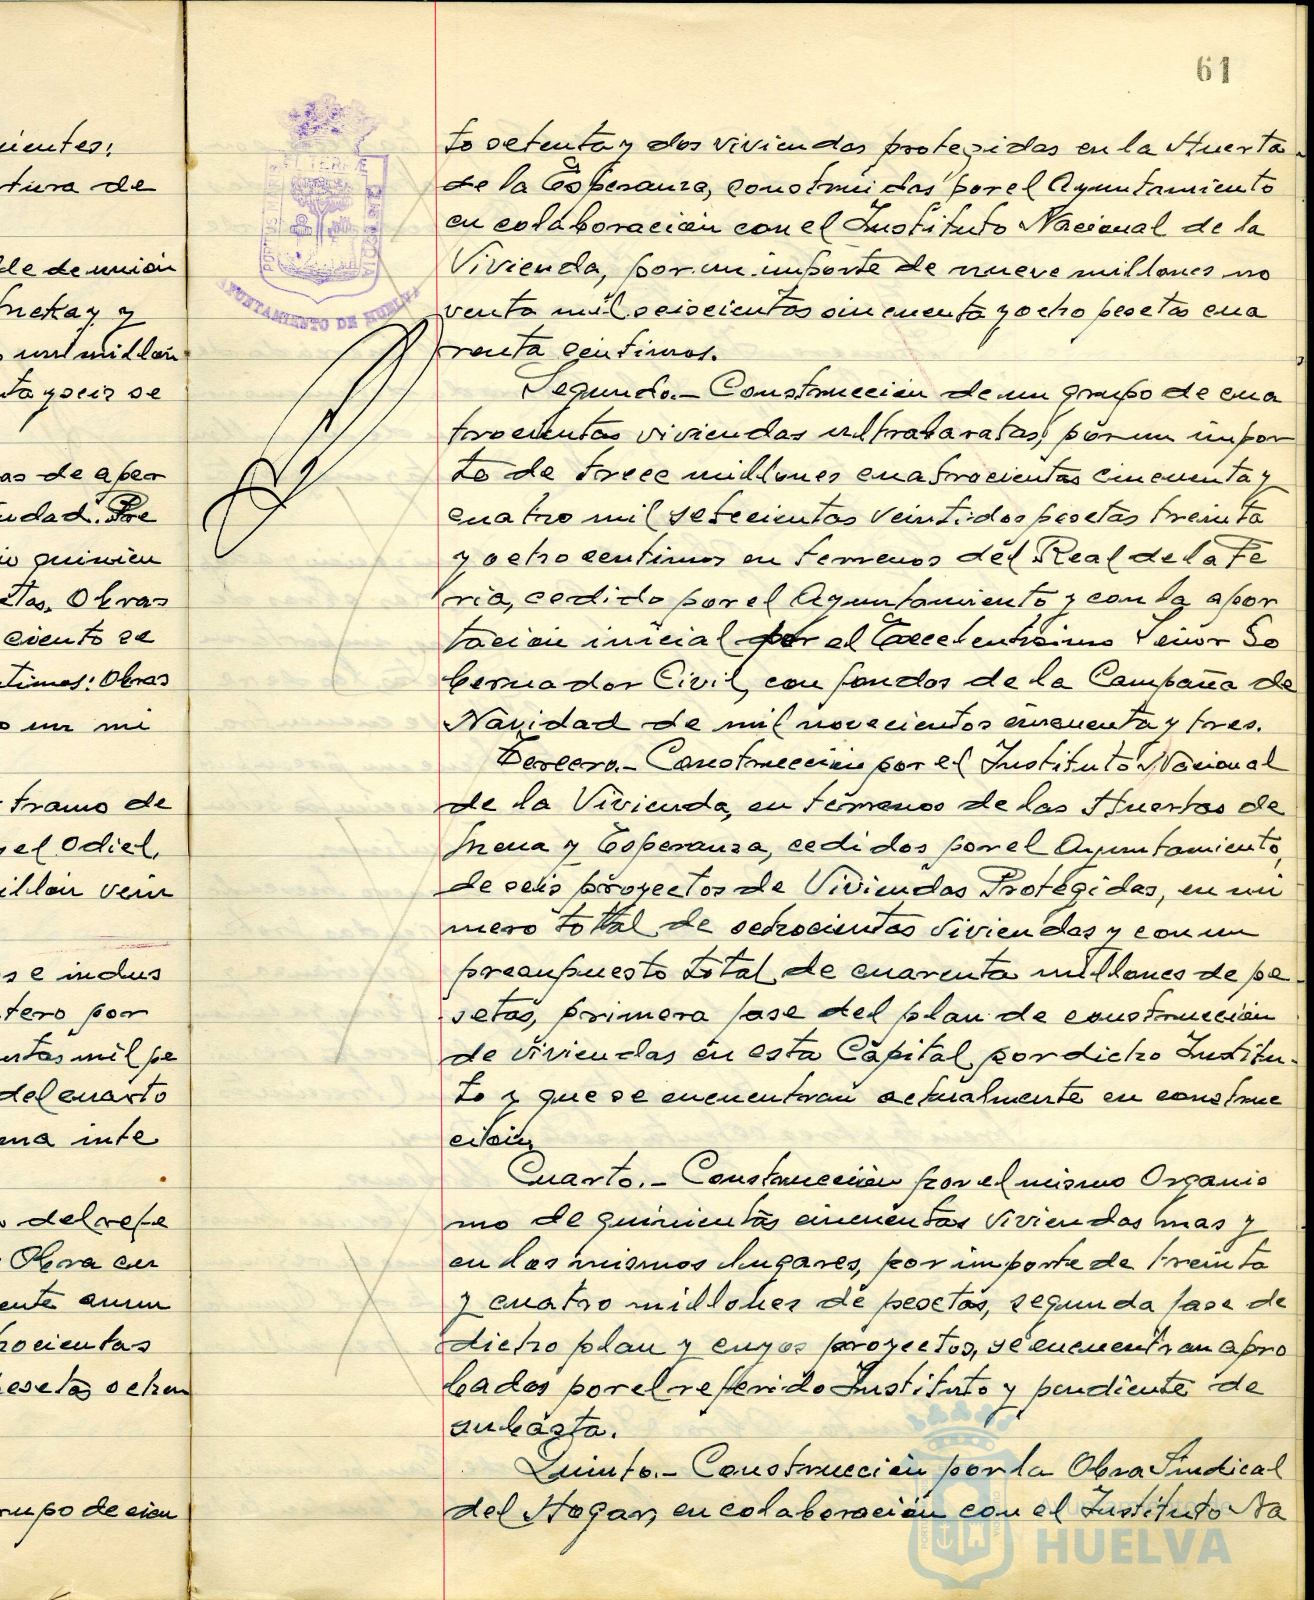 61
nientes:
tura de
de de unión
neka y, y
un millón
ta y seis se
as de aper
udad. Pre
io quinien
etas. Obras
ciento se
timos: Obras
o un mi
tramo de
y el Odiel,
illón vein
s e indus
tero por
ntas mil pe
del cuarto
ma inte
o del refe
Obra en
ente anun
rocientas
esetas ochen
rupo de cien
PORTUS MARIS ET TERRAE CUSTODIA
AYUNTAMIENTO DE HUELVA
to setenta y dos viviendas protegidas en la Huerta
de la Esperanza, construidas por el Ayuntamiento
en colaboración con el Instituto Nacional de la
Vivienda, por un importe de nueve millones no
venta mil seiscientas cincuenta y ocho pesetas cua
renta centimos.
Segundo.- Construccion de un grupo de cua
trocientas viviendas ultrabaratas, por un impor
te de trece millones cuatrocientas cincuenta y
cuatro mil setecientas veintidos pesetas treinta
y ocho centimos en terrenos del Real de la Fe
ria, cedido por el Ayuntamiento y con la apor
tacion inicial por el Excelentisimo Señor Go
bernador Civil, con fondos de la Campaña de
Navidad de mil novecientos cincuenta y tres.
Tercero.- Construcción por el Instituto Nacional
de la Vivienda, en terrenos de las Huertas de
Mena y Esperanza, cedidos por el Ayuntamiento,
de seis proyectos de Viviendas Protegidas, en nú
mero total de ochocientas viviendas y con un
presupuesto total de cuarenta millones de pe-
setas, primera fase del plan de construcción
de viviendas en esta Capital por dicho Institu-
to y que se encuentran actualmente en construc
ción.
Cuarto.- Construcción por el mismo Organis
mo de quinientas cincuentas viviendas mas y
en los mismos lugares, por importe de treinta
y cuatro millones de pesetas, segunda fase de
dicho plan y cuyos proyectos, se encuentran apro
bados por el referido Instituto y pendiente de
subasta.
Quinto.- Construcción por la Obra Sindical
del Hogar, en colaboración con el Instituto Na
HUELVA